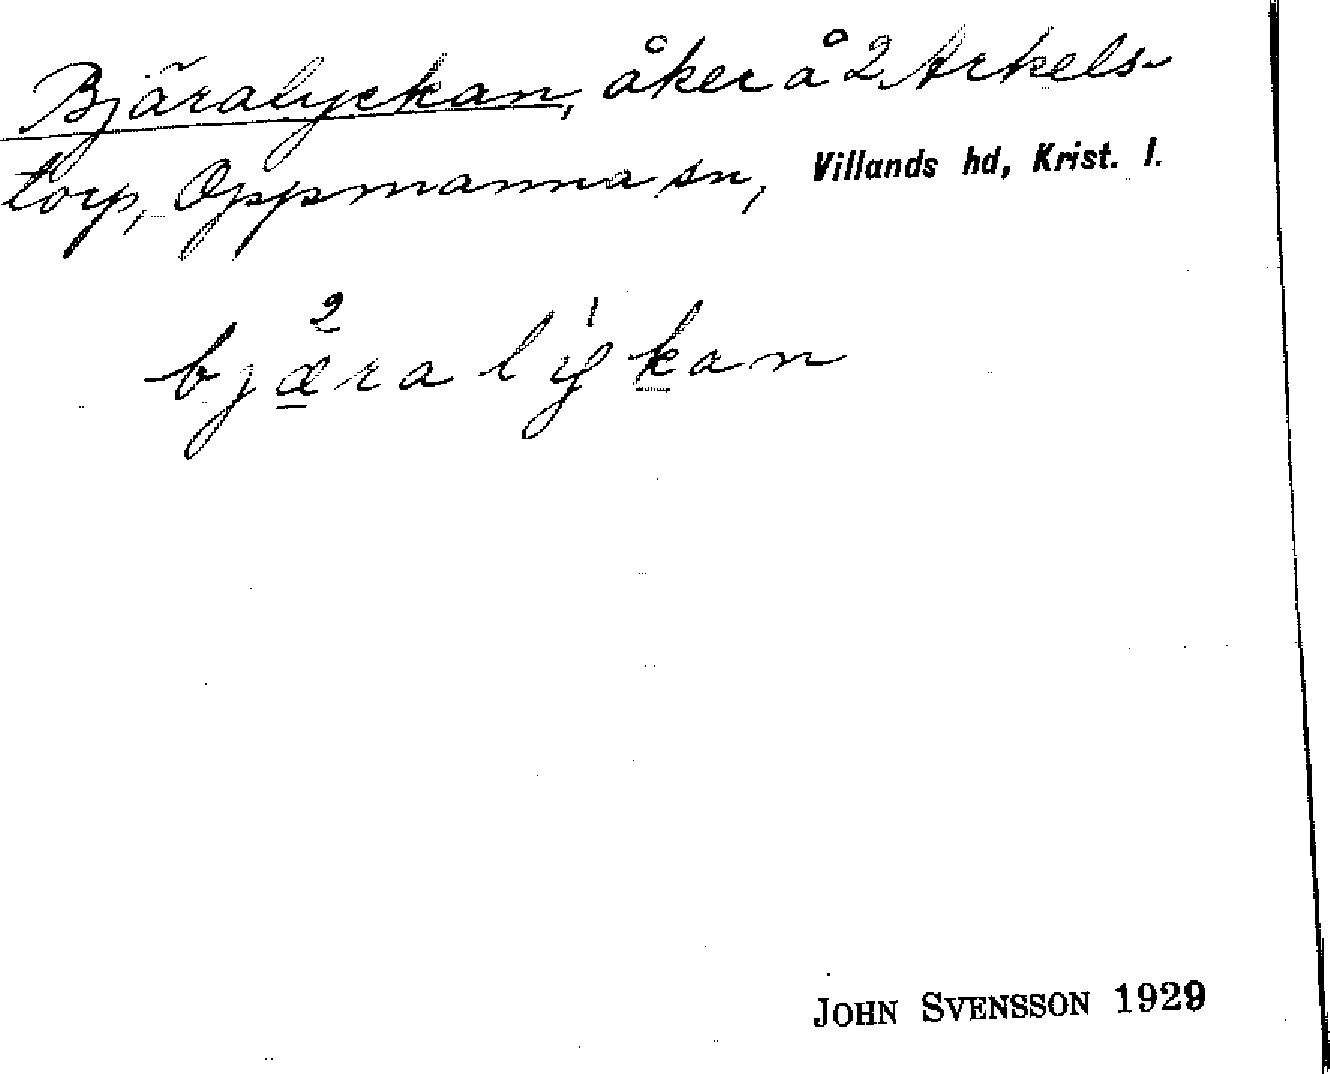 Bjäralyckan, åker å 2 Arkels-
torp, Oppmanna sn, Villands hd, Krist. l.
2 1
bjæra lykan
JOHN SVENSSON 1929